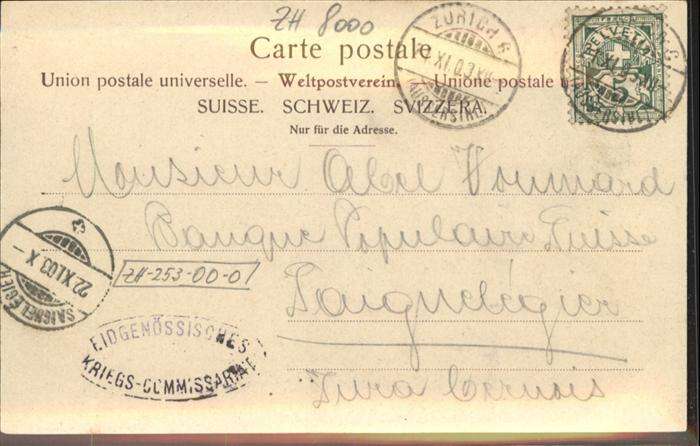 ZH 8000
Carte postale
Union postale universelle. — Weltpostverein. — Unione postale
SUISSE. SCHWEIZ. SVIZZERA.
Nur für die Adresse.
ZÜRICH 6
XI.03.X
HELVETIA
5
Monsieur Abel Voumard
Banque Populaire Suisse
Saignelégier
Jura Bernois
SAIGNELÉGIER
22.XI.03.X
ZH-253-00-0
EIDGENÖSSISCHES
KRIEGS-COMMISSARIAT